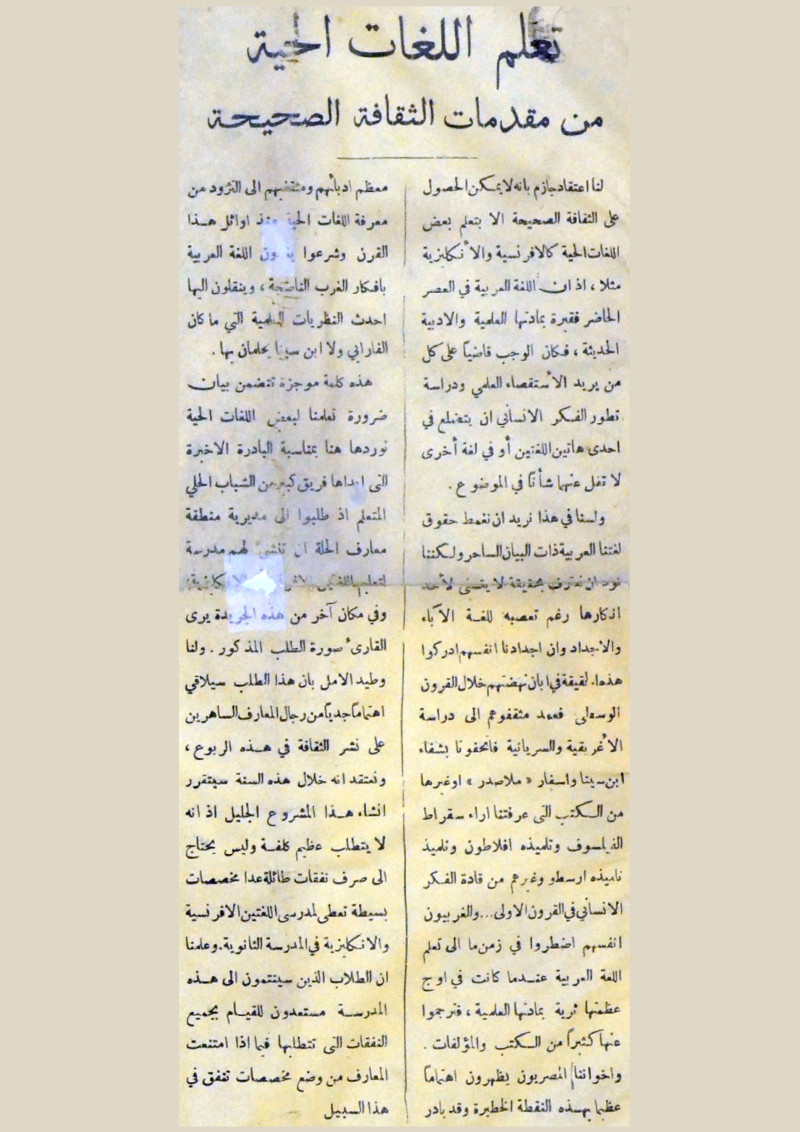 تعلم اللغات الحية
من مقدمات الثقافة الصحيحة
لنا اعتقاد جازم بانه لا يمكن الحصول
على الثقافة الصحيحة الا بتعلم بعض
اللغات الحية كالافرنسية والانكليزية
مثلا ، اذ ان اللغة العربية في العصر
الحاضر فقيرة بمادتها العلمية والادبية
الحديثة ، فكان الوجب قاضياً على كل
من يريد الأستقصاء العلمي ودراسة
تطور الفكر الانساني ان يتضلع في
احدى هاتين اللغتين أو في لغة أخرى
لا تقل عنهما شأناً في الموضوع .
ولسنا في هذا نريد ان نغمط حقوق
لغتنا العربية ذات البيان الساحر ولكننا
نود ان نعترف بحقيقة لا يتسنى لأحد
انكارها رغم تعصبه للغة الآباء
والاجداد وان اجدادنا انفسهم ادركوا
هذه الحقيقة في ابان نهضتهم خلال القرون
الوسطى فعمد مثقفوهم الى دراسة
الأغريقية والسريانية فاتحفونا بشفاء
ابن سينا واسفار « ملاصدر » اوغيرها
من الكتب التى عرفتنا اراء سقراط
الفيلسوف وتلميذه افلاطون وتلميذ
تلميذه ارسطو وغيرهم من قادة الفكر
الانساني في القرون الاولى... والغربيون
انفسهم اضطروا في زمن ما الى تعلم
اللغة العربية عندما كانت في اوج
عظمتها ثرية بمادتها العلمية ، فترجموا
عنها كثيراً من الكتب والمؤلفات .
واخواننا المصريون يظهرون اهتماماً
عظيما بهذه النقطة الخطيرة وقد بادر
معظم ادبائهم ومثقفيهم الى التزود من
معرفة اللغات الحية منذ اوائل هذا
القرن وشرعوا اللغة العربية
بافكار الغرب الناضجة ، وينقلون اليها
احدث النظريات العلمية التي ما كان
الفارابي ولا ابن سينا يحلمان بها .
هذه كلمة موجزة تتضمن بيان
ضرورة تعلمنا لبعض اللغات الحية
نوردها هنا بمناسبة البادرة الاخيرة
التى ابداها فريق كبير من الشباب الحلي
المتعلم اذ طلبوا الى مديرية منطقة
معارف الحلة ان تنشئ لهم مدرسة
لتعليم اللغتين الافرنسية والانكليزية ؛
وفي مكان آخر من هذه الجريدة يرى
القارئ صورة الطلب المذكور . ولنا
وطيد الامل بان هذا الطلب سيلاقي
اهتماماً جدياً من رجال المعارف الساهرين
على نشر الثقافة في هذه الربوع ،
ونعتقد انه خلال هذه السنة سيتقرر
انشاء هذا المشروع الجليل اذ انه
لا يتطلب عظيم كلفة وليس يحتاج
الى صرف نفقات طائلة عدا مخصصات
بسيطة تعطى لمدرسى اللغتين الافرنسية
والانكليزية في المدرسة الثانوية. وعلمنا
ان الطلاب الذين سينتمون الى هذه
المدرسة مستعدون للقيام بجميع
النفقات التى تتطلبها فيما اذا امتنعت
المعارف من وضع مخصصات تنفق في
هذا السبيل